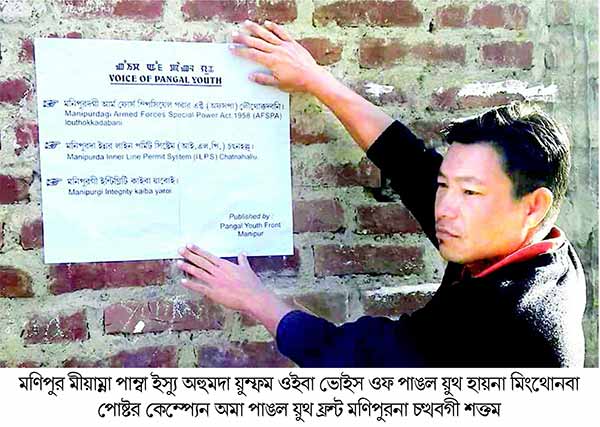 VOICE OF PANGAL YOUTH
Manipurdagi Armed Forces Special Power Act.1958 (AFSPA)
louthokkadabani
মণিপুরদা ইনর লাইন পর্মিট সিষ্টেম (আই.এল.পি.) চৎনহল্লু।
Manipurda Inner Line Permit System (ILPS) Chatnahallu.
মণিপুরগী ইন্টিগ্রিটি কাইবা য়ারোই।
Manipurgi Integrity kaiba yaroi
Published by :
Pangal Youth Front
Manipur
মণিপুর মীয়াম্না পাম্বা ইস্যু অহুমদা য়ুম্ফম ওইবা ভোইস ওফ পাঙল য়ুথ হায়না মিংথোনবা
পোষ্টর কেম্পেন অমা পাঙল য়ুথ ফ্রন্ট মণিপুরনা চত্থবগী শক্তম